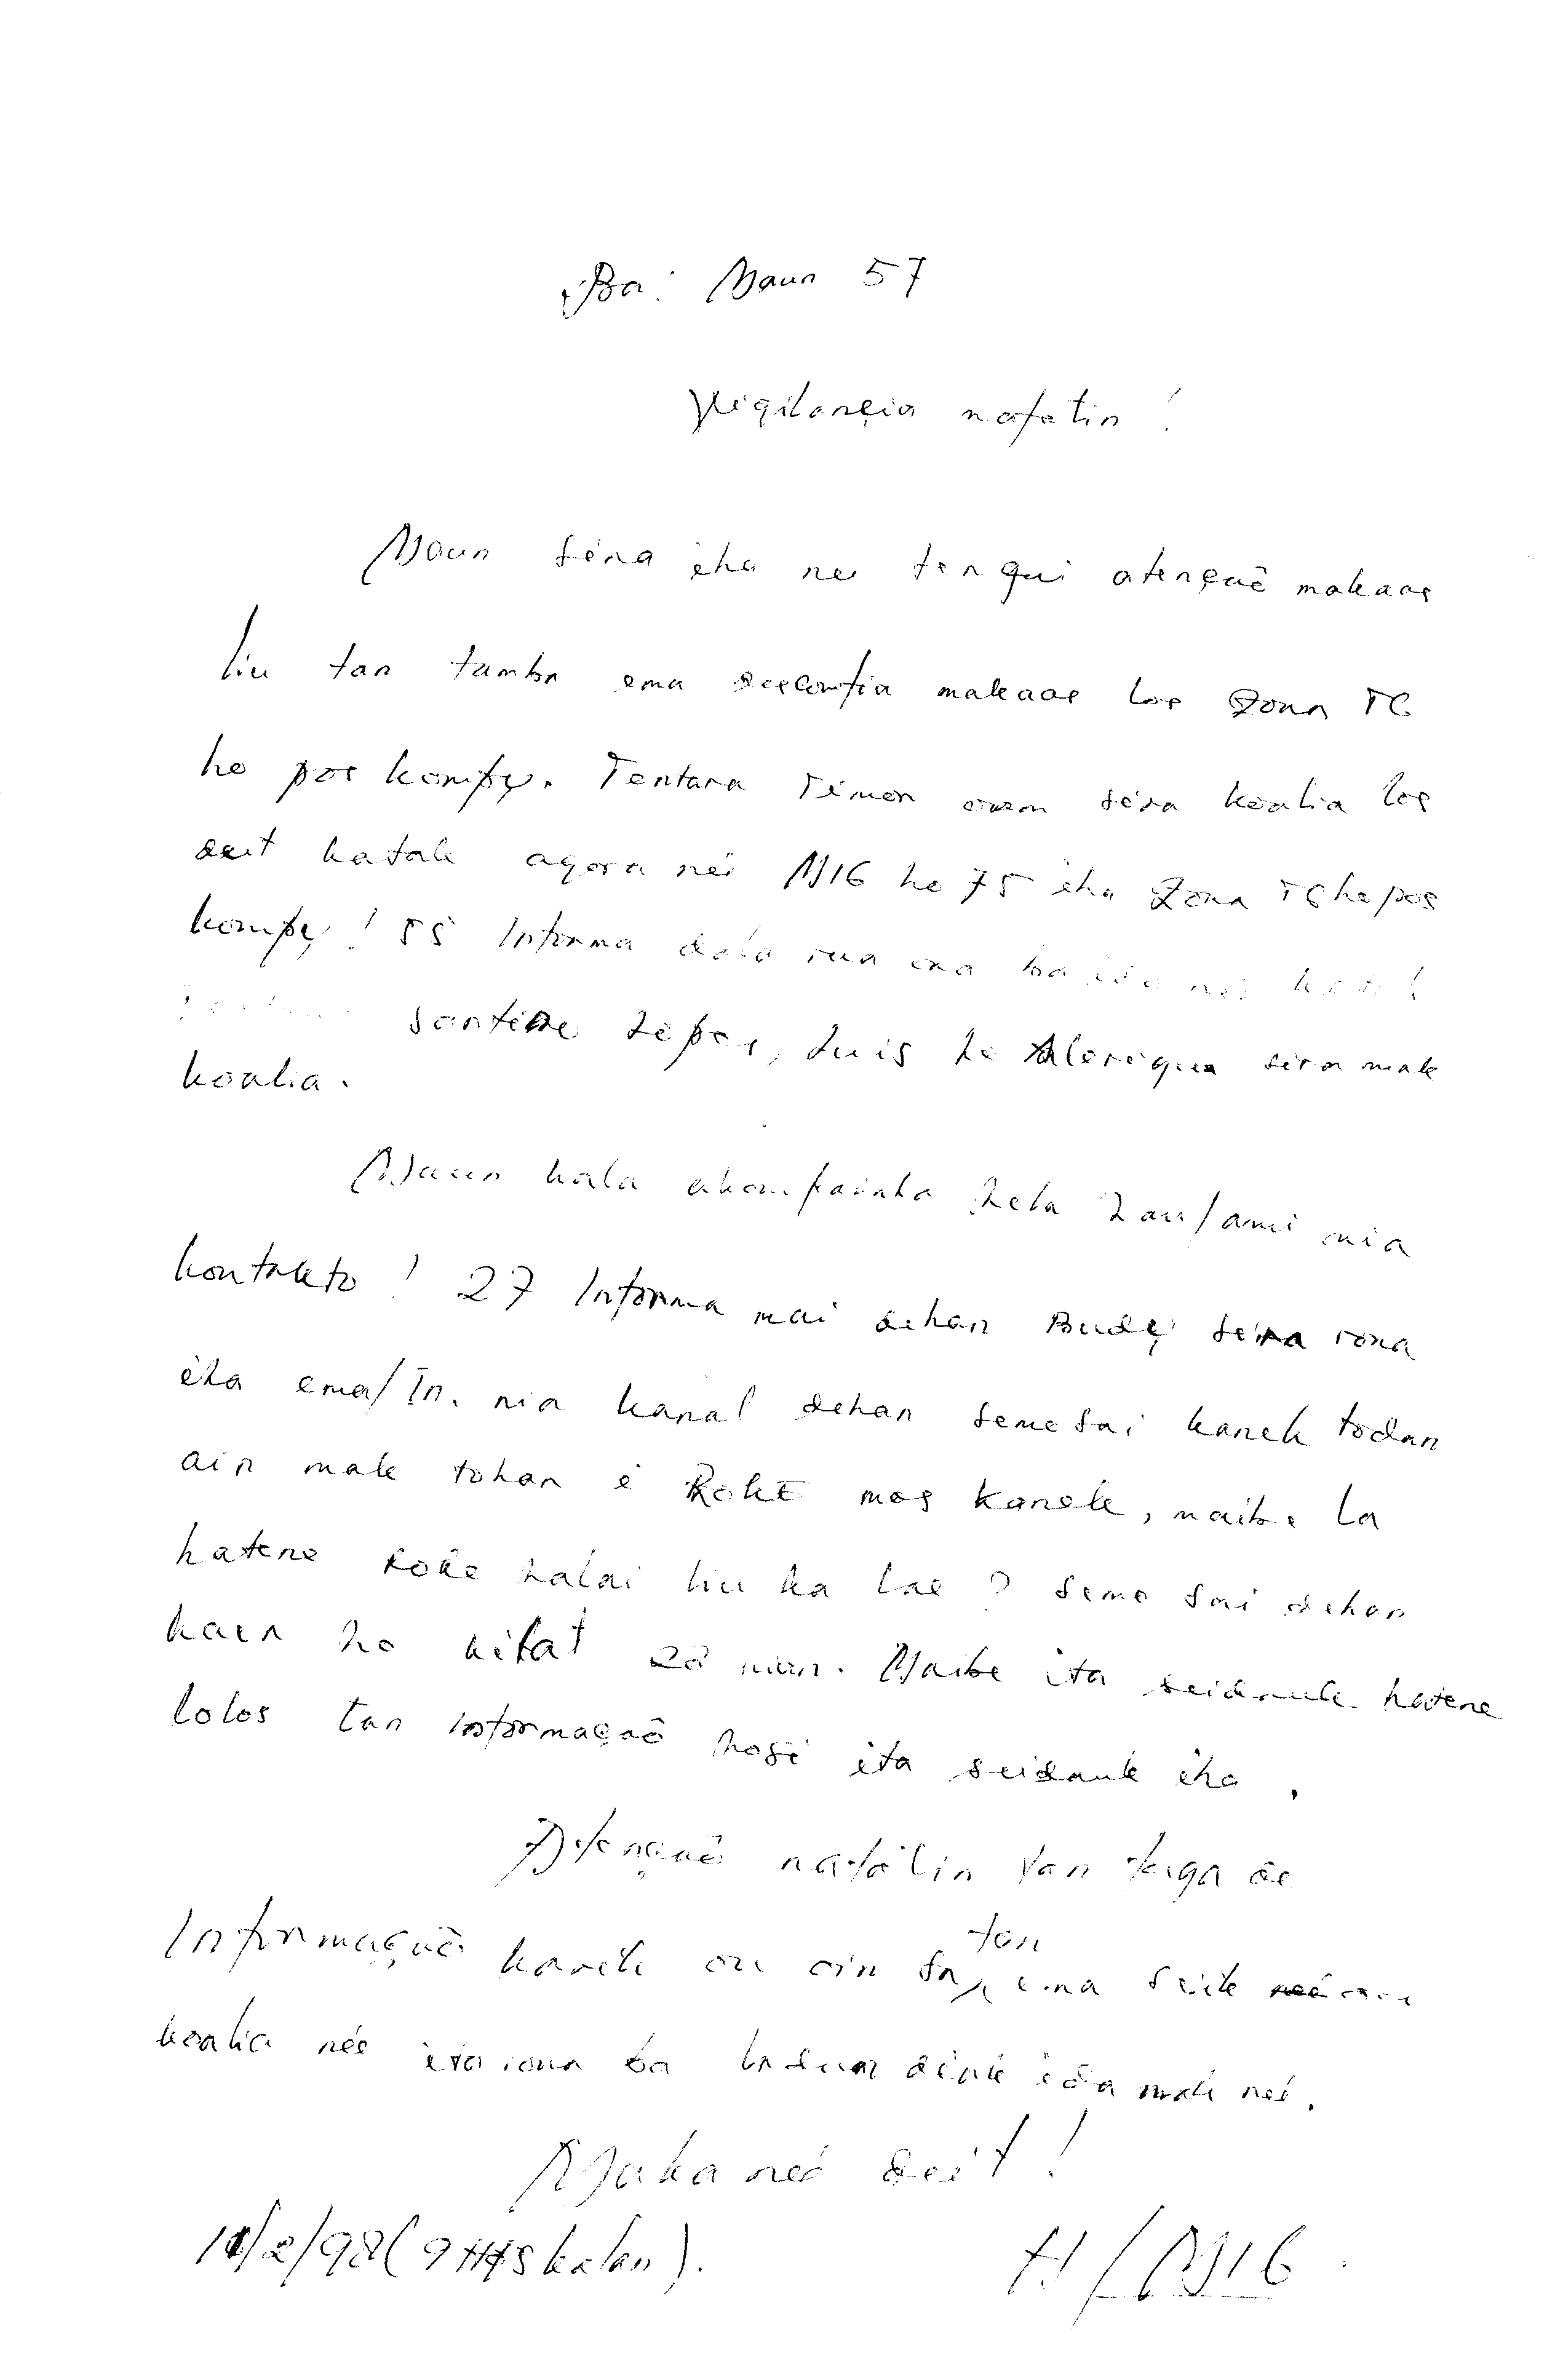 Ba: Maun 57
Vigilançia nafatin!
Maun sira iha ne tengui atençaõ makaas
liu tan tamba ema desconfia makaas los Zona TC
ho pos komfy. Tentara Timor oan sira koalia los
deit katak agora nei M16 ho 75 iha Zona TC ho pos
komfy! 55 Informa dala rua ona ba ita nei
Santine Lepes, Luis ho Alerigua sira mak
koalia.
Maun hala akompainha hela hau/ami nia
kontakto! 27 Informa mai dehan Budy sira rona
iha ema/In. nia kanal dehan seme sai kanek todan
ain mak tohar i Roke mos kanek, maibe la
hatene roke halai liu ka lae? seme sai dehan
kaer ho kilat nian. Maibe ita seidauk hatene
lolos tan Informaçaõ hosi ita seidauk iha.
Atençaõ nafatin tan fuga de
Informaçaõ karik ou oin sa tan ema seik
koalia nee ita rona ba la sura diak ida mak nei.
Maka neé deit!
10/2/98 (9 HRS kalan). H/M16